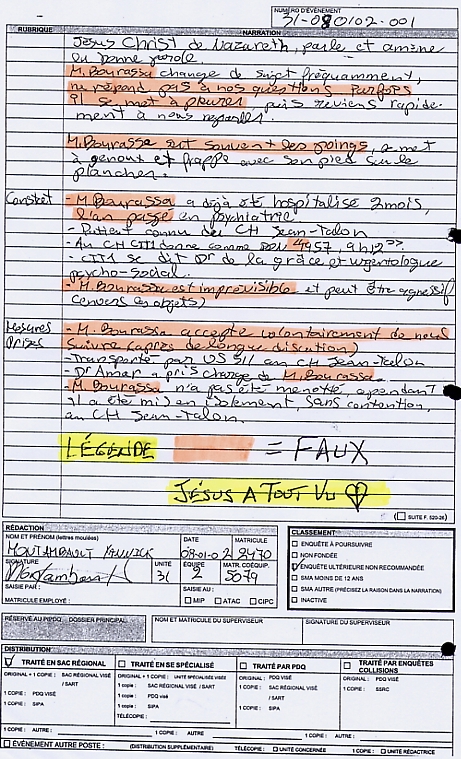 NUMÉRO D'ÉVÉNEMENT
31-080102-001
RUBRIQUE NARRATION
Jésus Christ de Nazareth, parle et amène
la bonne parole
M. Bourassa change de sujet fréquemment,
ne répond pas à nos questions parfois
il se met à pleurer, puis reviens rapide-
ment à nous regarder.
M. Bourassa sert souvent les poings, se met
à genoux et frappe avec son pied sur le
plancher.
Constat - M. Bourassa a déjà été hospitalisé 2 mois,
l'an passé en psychiatrie.
- Patient connu du CH Jean-Talon
- Au CH CIII donne comme DDN 4957, 9h12
- CIII se dit Dr de la grâce et urgentologue
psycho-social.
- M. Bourassa est imprévisible et peut être agressif
(envers les objets)
Mesures - M. Bourassa accepte volontairement de nous
Prises suivre (après de longue discution)
- Transporté par US 511 au CH Jean-Talon
- Dr Amar a pris charge de M. Bourassa.
- M. Bourassa n'a pas été menotté, cependant
il a été mis en isolement, sans contention,
au CH Jean-Talon.
LÉGENDE = FAUX
JÉSUS A TOUT VU
(SUITE F. 520-26)
RÉDACTION
NOM ET PRÉNOM (lettres moulées) DATE MATRICULE
MONTAMBAULT YANNICK 08-01-02 2470
SIGNATURE UNITÉ ÉQUIPE MATR. COÉQUIP.
31 2 5079
SAISIE PAR : SAISIE AU :
MATRICULE EMPLOYÉ : MIP ATAC CIPC
CLASSEMENT
ENQUÊTE À POURSUIVRE
NON FONDÉE
ENQUÊTE ULTÉRIEURE NON RECOMMANDÉE
SMA MOINS DE 12 ANS
SMA AUTRE (PRÉCISEZ LA RAISON DANS LA NARRATION)
INACTIVE
RÉSERVÉ AU PI/PDQ DOSSIER PRINCIPAL NOM ET MATRICULE DU SUPERVISEUR SIGNATURE DU SUPERVISEUR
DISTRIBUTION
TRAITÉ EN SAC RÉGIONAL TRAITÉ EN SE SPÉCIALISÉ TRAITÉ PAR PDQ TRAITÉ PAR ENQUÊTES COLLISIONS
ORIGINAL + 1 COPIE : SAC RÉGIONAL VISÉ / SART
1 COPIE : PDQ VISÉ
1 COPIE : SIPA
ORIGINAL + 1 COPIE : UNITÉ SPÉCIALISÉE VISÉE
1 copie : SAC RÉGIONAL VISÉ / SART
1 copie : PDQ visé
1 copie : SIPA
TÉLÉCOPIE :
ORIGINAL : PDQ VISÉ
1 copie : SAC RÉGIONAL VISÉ / SART
1 COPIE : SIPA
ORIGINAL : PDQ VISÉ
1 COPIE : SSRC
1 COPIE : AUTRE : 1 COPIE : AUTRE : 1 COPIE : AUTRE : 1 COPIE : AUTRE :
ÉVÉNEMENT AUTRE POSTE : (DISTRIBUTION SUPPLÉMENTAIRE) TÉLÉCOPIE : UNITÉ CONCERNÉE 1 COPIE : UNITÉ RÉDACTRICE